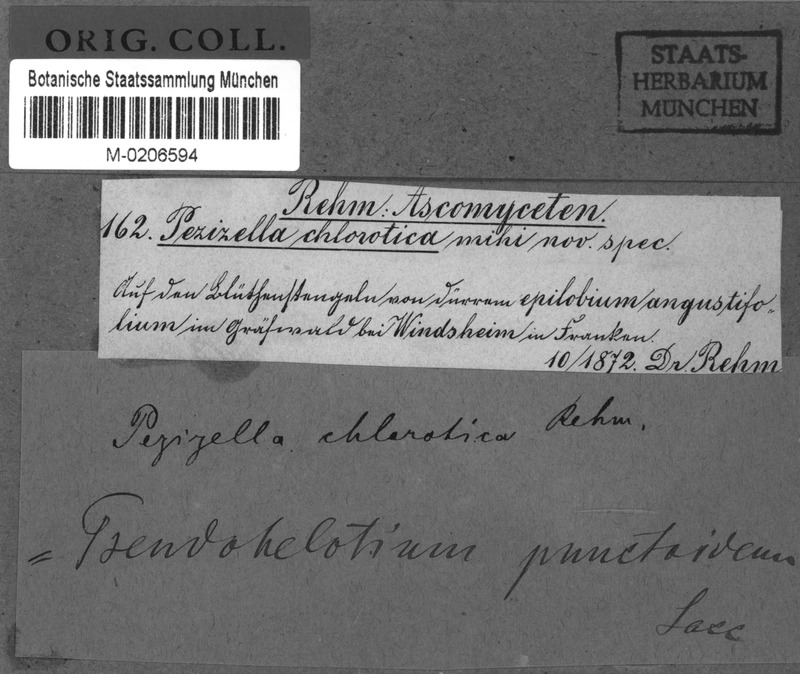 ORIG. COLL.
Botanische Staatssammlung München
M-0206594
STAATS-
HERBARIUM
MÜNCHEN
Rehm: Ascomyceten.
162. Pezizella chlorotica mihi nov. spec.
Auf den Blüthenstengeln von dürrem epilobium angustifo-
lium im Gräfwald bei Windsheim in Franken.
10/1872. Dr Rehm
Pezizella chlorotica Rehm.
= Pseudohelotium punctoideum
Sacc